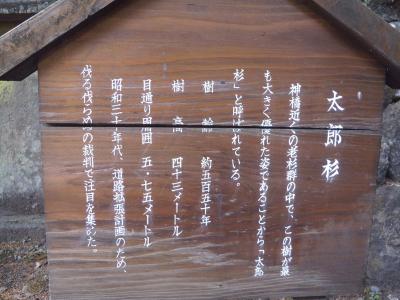 太郎杉
神橋近くの老杉群の中で、この樹が最
も大きく優れた姿であることから「太郎
杉」と呼ばれている。
樹齢 約五百五十年
樹高 四十三メートル
目通り周囲 五・七五メートル
昭和三十年代、道路拡張計画のため、
伐る伐らぬの裁判で注目を集めた。